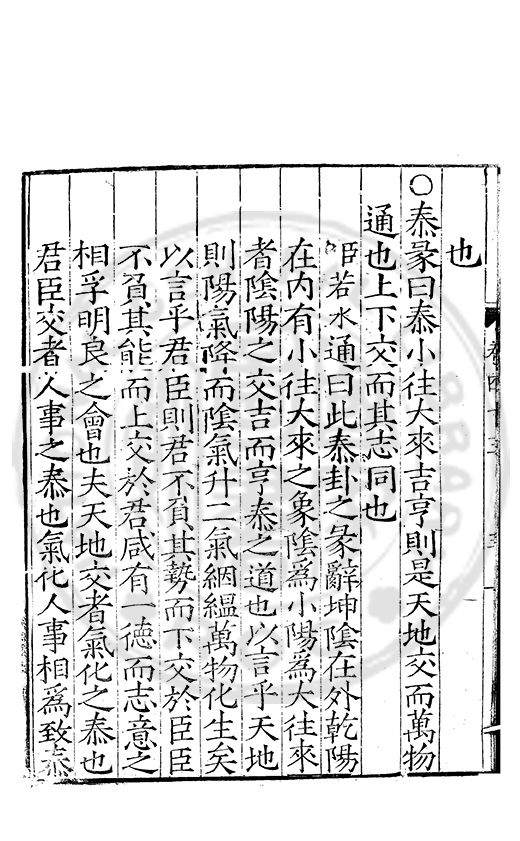 也
○泰彖曰泰小往大來吉亨則是天地交而萬物
通也上下交而其志同也
臣若水通曰此泰卦之彖辭坤陰在外乾陽
在内有小往大來之象陰爲小陽爲大往來
者陰陽之交吉而亨泰之道也以言乎天地
則陽氣降而陰氣升二氣絪縕萬物化生矣
以言乎君臣則君不負其勢而下交於臣臣
不負其能而上交於君咸有一德而志意之
相孚明良之會也夫天地交者氣化之泰也
君臣交者人事之泰也氣化人事相爲致泰